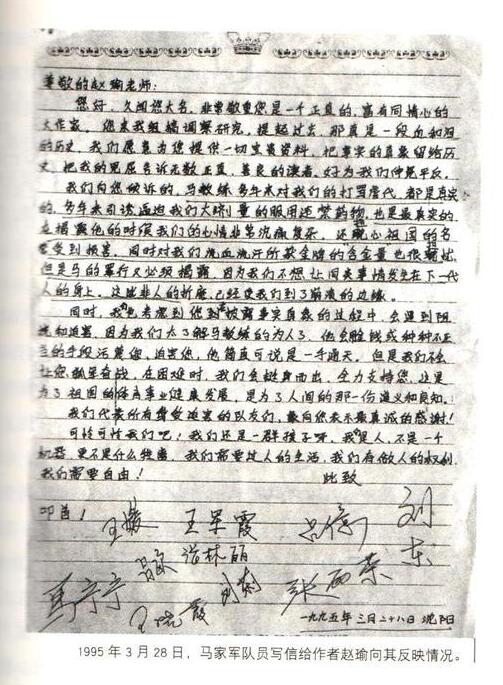 尊敬的赵瑜老师：
您好，久闻您大名，非常敬重您是一个正直的，富有同情心的
大作家。您来我组搞调察研究，提起过去，那真是一段血和泪
的历史，我们愿意为您提供一切宝贵资料，把事实的真象留给历
史，把我的冤屈告诉无数正直，善良的读者，好为我们伸冤平反。
我们向您倾诉的，马教练多年来对我们的打骂虐代，都是真实
的，多年来引诱逼迫我们大剂量的服用违禁药物，也是最真实的
揭露他的时候我们的心情非常沉痛复杂，还担心祖国的名
誉受到损害，同时对我们流血流汗所获金牌的含金量也很担忧
但是马的罪行又必须揭露，因为我们不想让同类事情发生在下一代
人的身上，这些非人的折磨，已经使我们到了崩溃的边缘。
同时，我们也考虑到您到披露事实真象的过程中，会遇到阻
挠和迫害，因为我们太了解马教练的为人了，他会赔钱或种种不正
当的手段诬蔑您，迫害您，他简直可说是一手通天，但是我们不会
让您孤军奋战，在困难时，我们会挺身而出，全力支持您，这是
为了祖国的体育事业健康发展，是为了人间的那一份道义和良知。
我们代表所有受迫害的队友们，最向您表示最真诚的感谢！
可怜可怜我们吧！我们还是一群孩子呀，我们是人，不是一个
机器，更不是什么牲畜，我们需要过人的生活，我们有做人的权利
我们需要自由！
此致
叩首！
王媛 王军霞 吕亿 刘东
吕欧 张林丽
马宁宁 王晓霞 刘莉 张丽荣
一九九五年三月二十八日 沈阳
1995年3月28日，马家军队员写信给作者赵瑜向其反映情况。